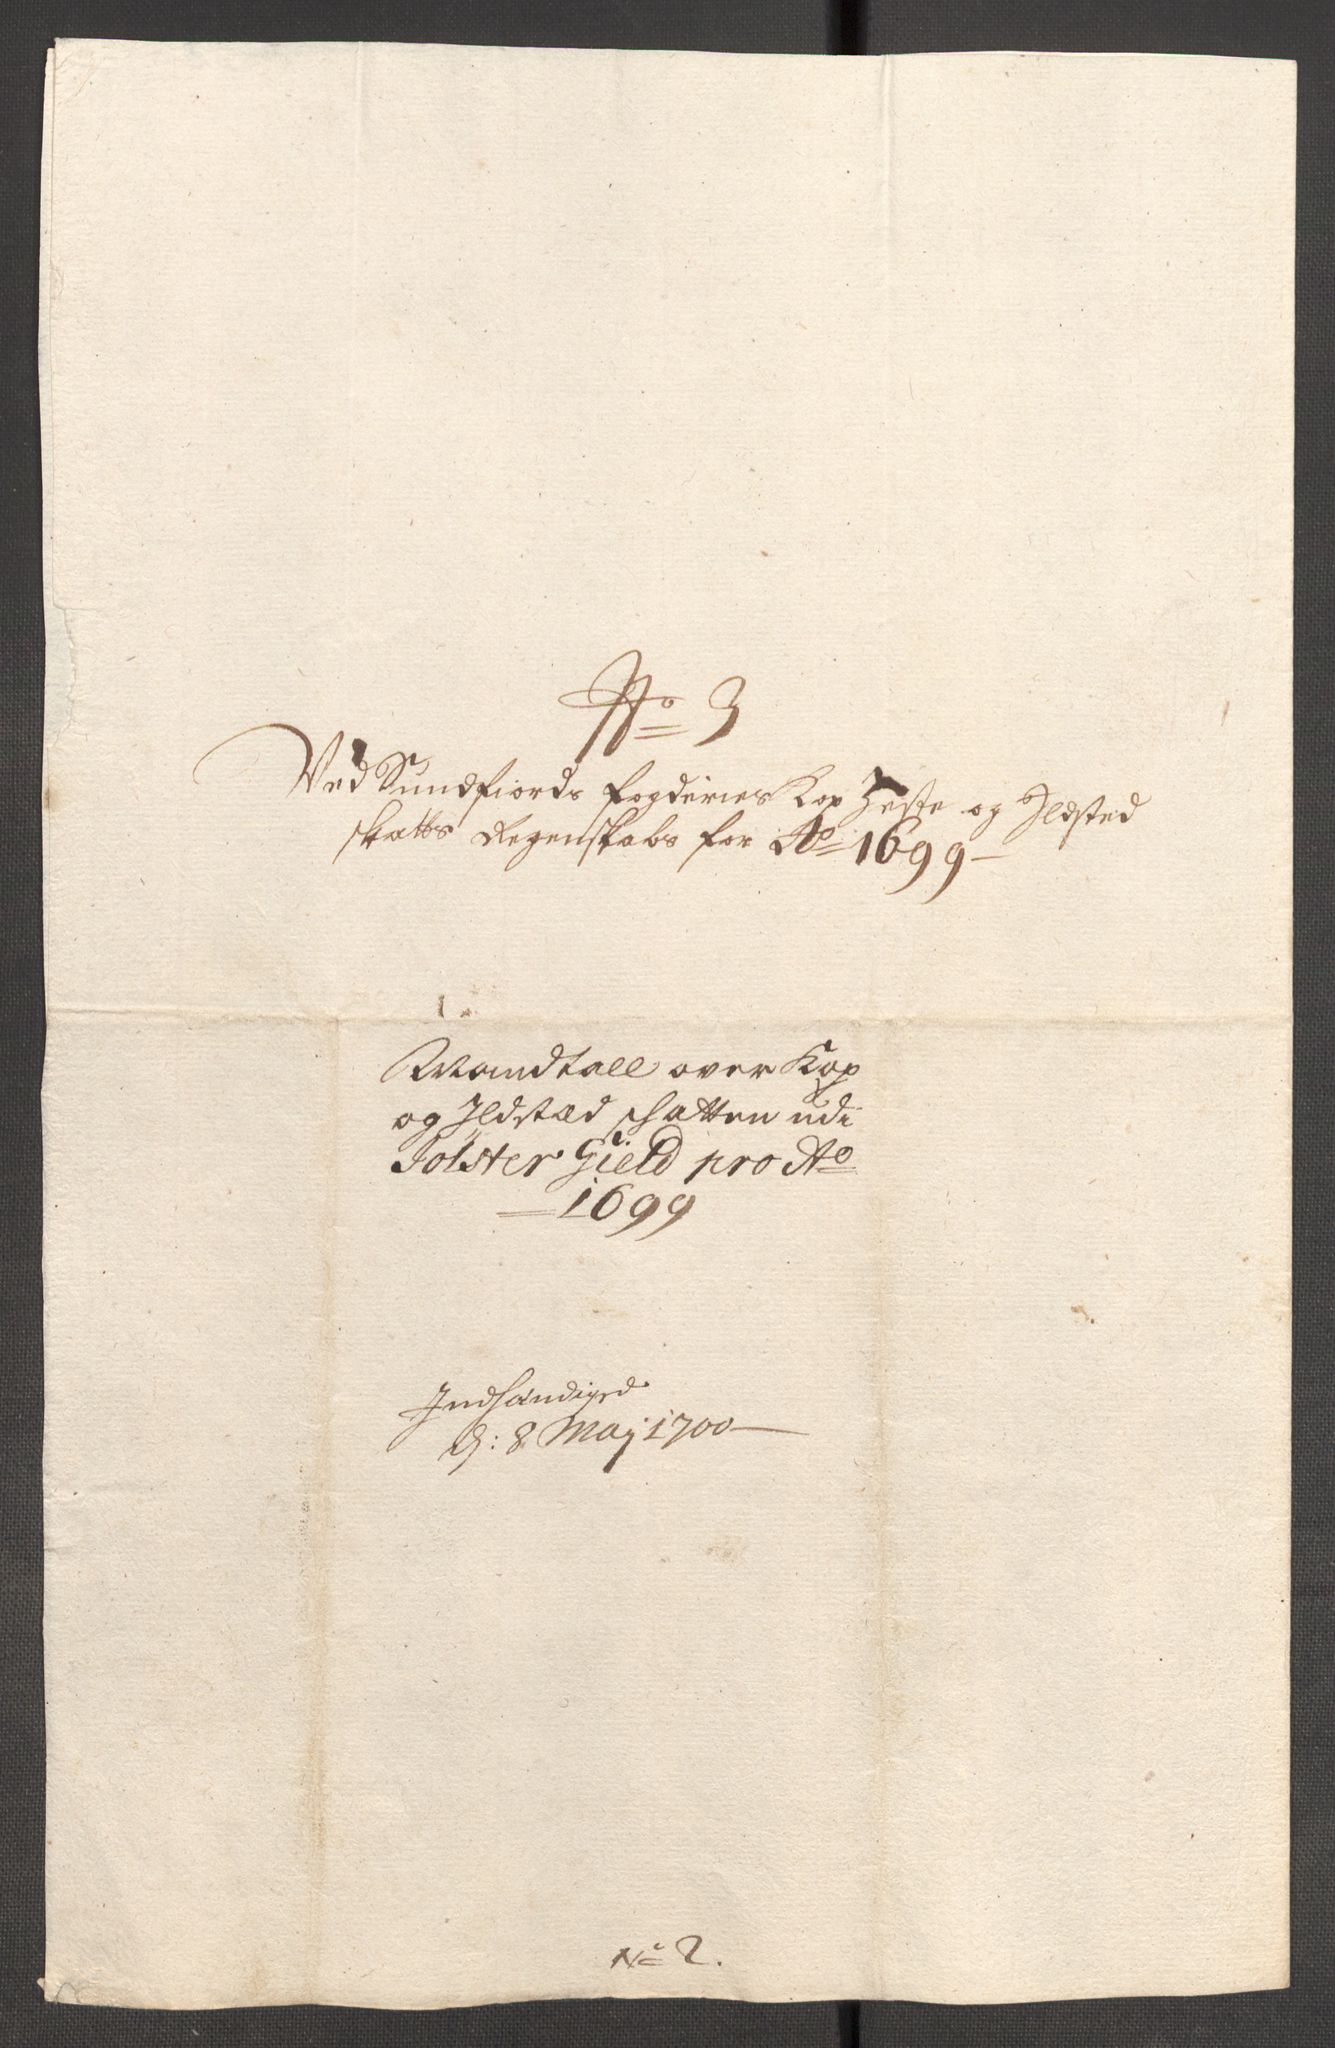 No 3
Ved Sundfiords fogderies Kop Heste og Ildsted
skatts Regenskabs for Ao 1699
Mandtall over Kop
og Ildstæd schatten udi
Iolster Gield pro Ao
1699
Indhændiged
d: 8 Maij 1700
No 2.